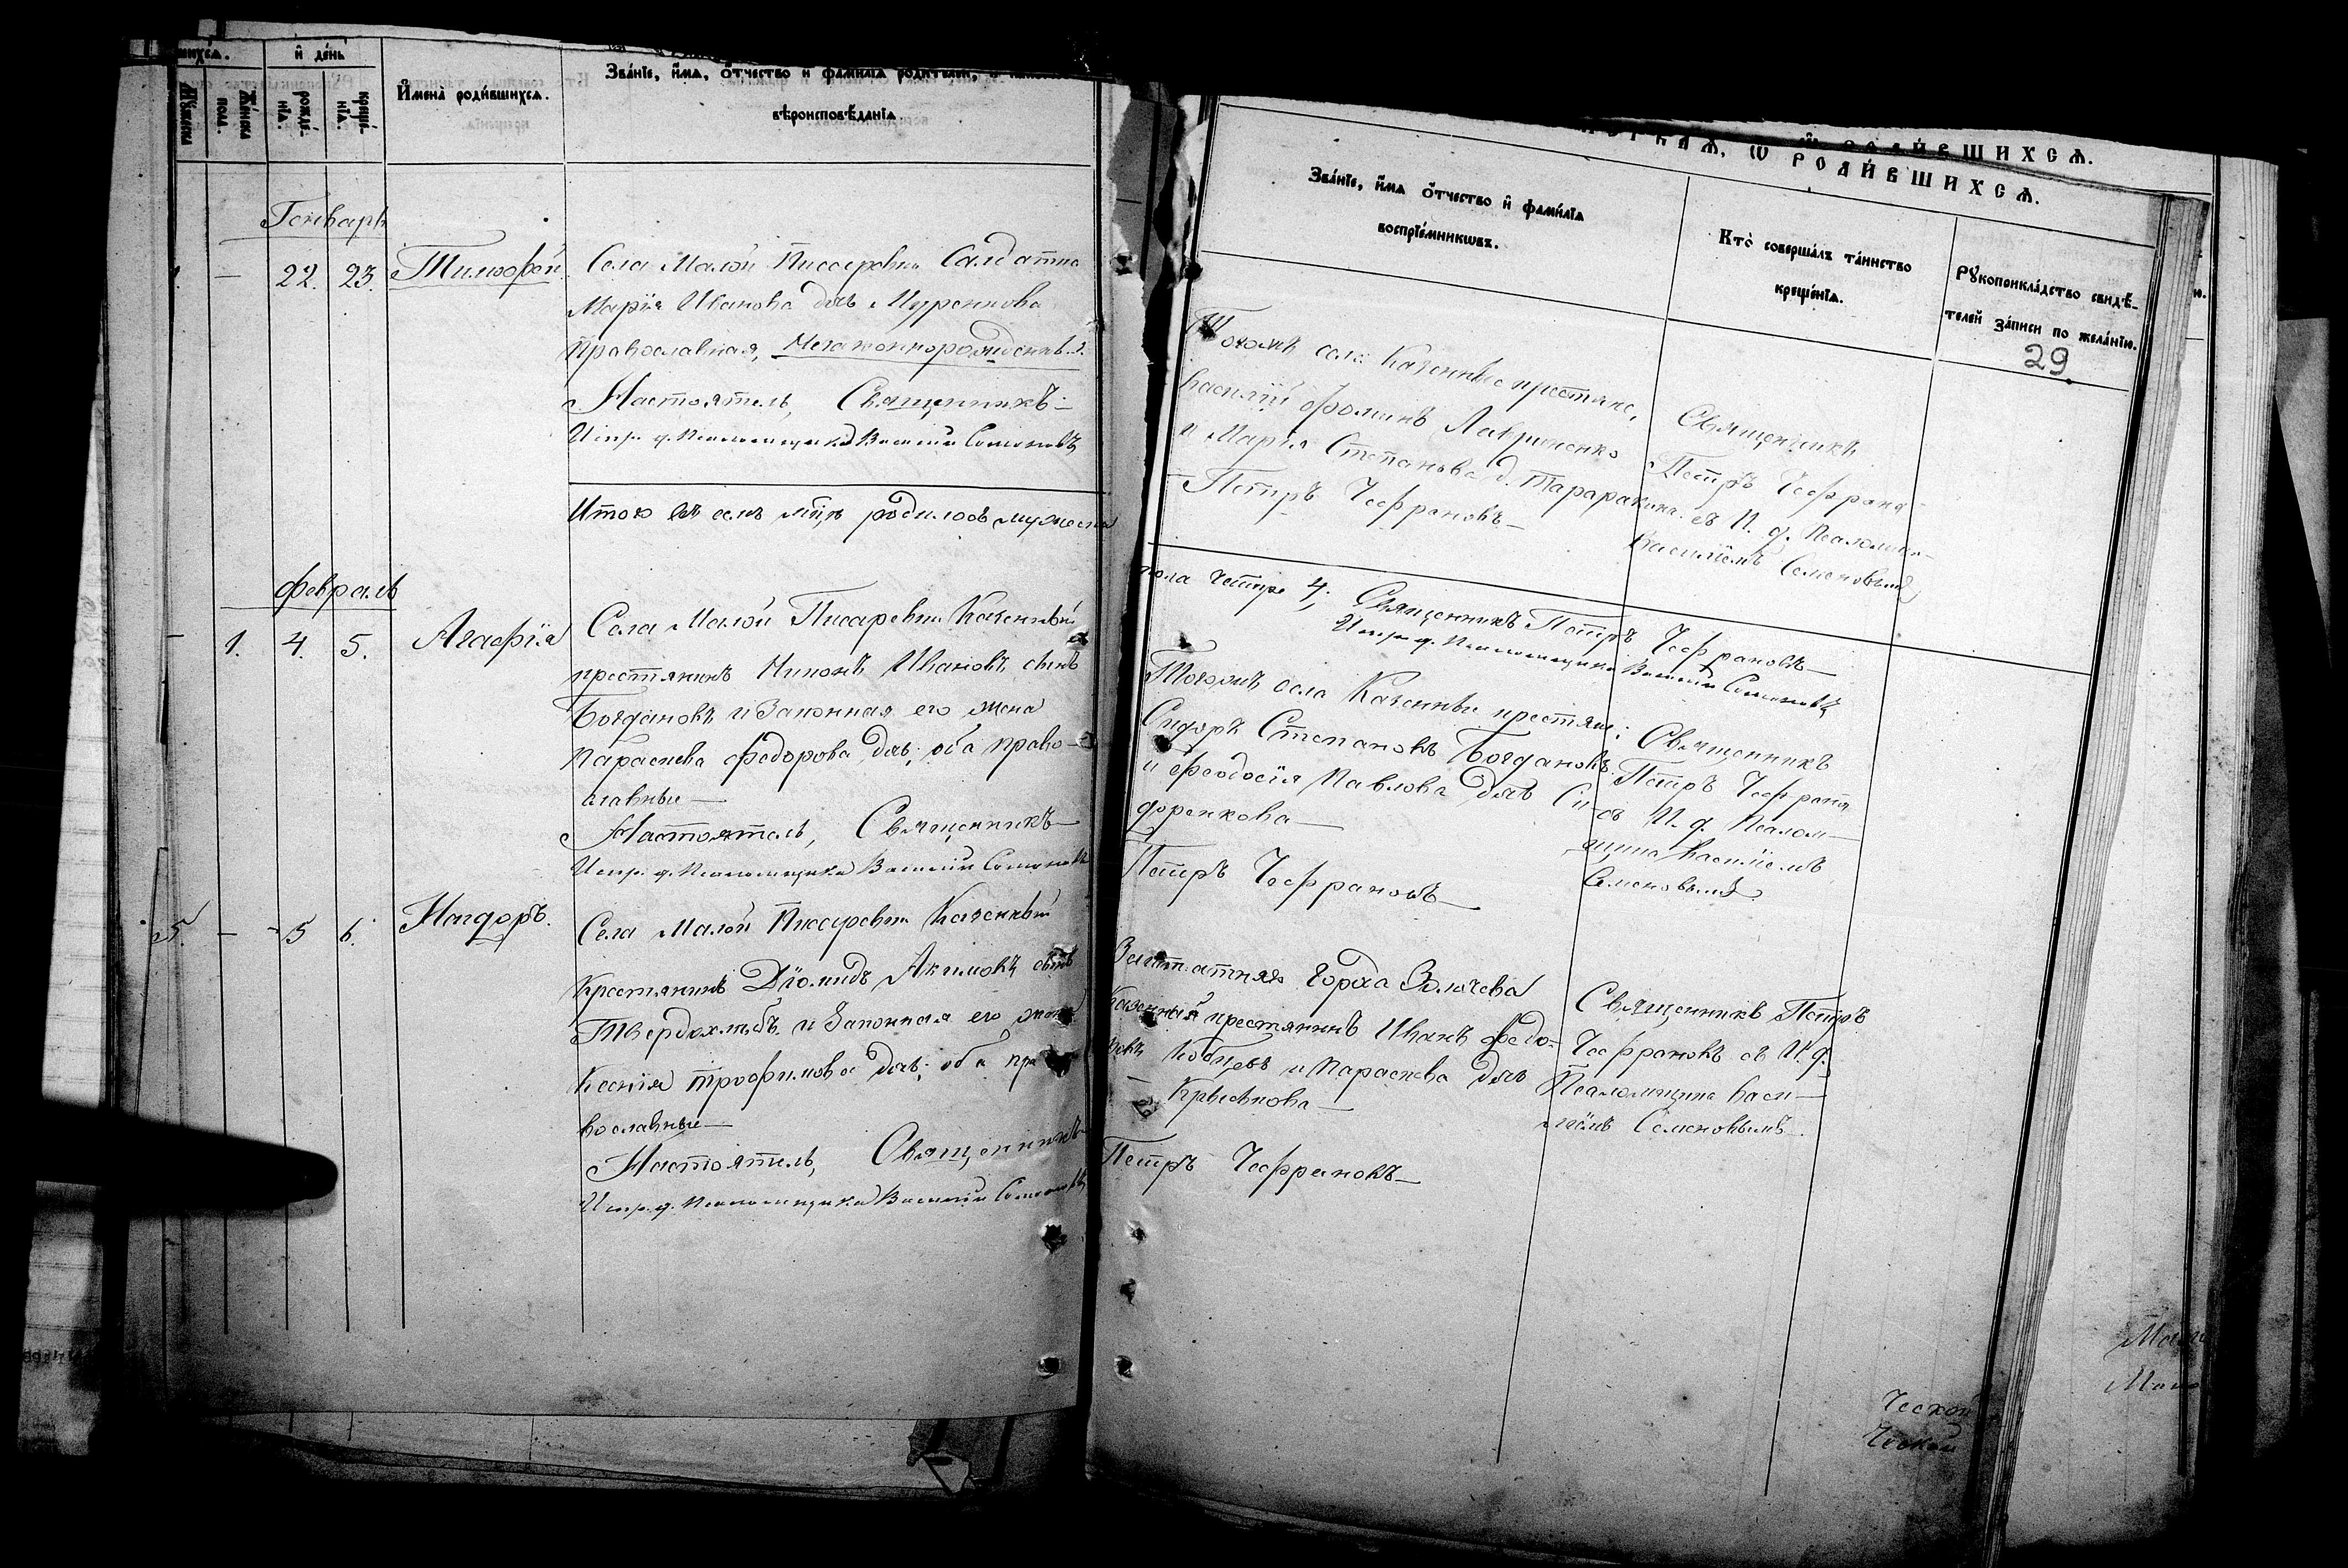 и҆ де́нь
И҆мена̀ роди́вшихсѧ.
Зва́нїе, и҆́мѧ, ѻ҆́тчество и҆ фами́лїѧ роди́телей,
вѣроисповѣ́данїѧ.
Же́нска
пола.
рожде́-
нїѧ.
креще́-
нїѧ.
Генварь
22. 23. Тимофей
Села Малой Писаревки Салдатка
Марія Иванова дочь Муренкова
Православная, Незаконнорожденный.
Настоятель, Священникъ
Испр. д. Псаломщика Василій Семеновъ
Итого въ семъ м-цѣ родилось мужеска
Февраль
1. 4. 5. Агафія
Села Малой Писаревки Казенный
крестьянинъ Никонъ Ивановъ сынъ
Богдановъ и Законная его жена
Параскева Федорова дочь; оба право-
славные
Настоятель, Священникъ
Испр. д. Псаломщика Василій Семеновъ
5. — 5 6.
Села Малой Писаревки Казенный
Крестьянинъ Діомидъ Акимовъ сынъ
Твердохлѣбъ и Законная его жена
Ксенія Трофимова дочь; оба пра
вославные
Настоятель, Священникъ
Испр. д. Псаломщика Василій Семеновъ
Ѡ҆ РОДИ́ВШИХСѦ.
Ѡ҆ РОДИ́ВШИХСѦ.
Зва́нїе, и҆́мѧ ѻ҆́тчество и҆ фами́лїѧ
воспрїе́мникѡвъ.
Кто̀ соверша́лъ та́инство
креще́нїѧ.
Рꙋкоприкла́дство свидѣ́-
телей за́писи по жела́нїю.
29
Тогожъ села Казенные крестьяне,
Василій Фоминъ Лавриненко
и Марія Степанова д. Тараракина.
Петръ Чефрановъ
Священникъ
Петръ Чефрано
съ И. д. Псаломщи-
Василіемъ Семеновымъ
пола четыре 4. Священникъ Петръ Чефрановъ
Испр. д. Псаломщика Василій Семеновъ
Тогожъ села Казенные крестьяне;
Сидоръ Степановъ Богдановъ
и Феодосія Павлова дочь Си-
доренкова
Петръ Чефрановъ
Священникъ
Петръ Чефранов
съ И. д. Псалом-
щика Василіемъ
Семеновымъ
Заштатнаго Города Золочева
Казенный крестьянинъ Иванъ Федо-
ровъ Кобцевъ и Параскева дочь
Петръ Чефрановъ
Священникъ Петръ
Чефрановъ съ И. д.
Псаломщика Васи-
ліемъ Семеновымъ